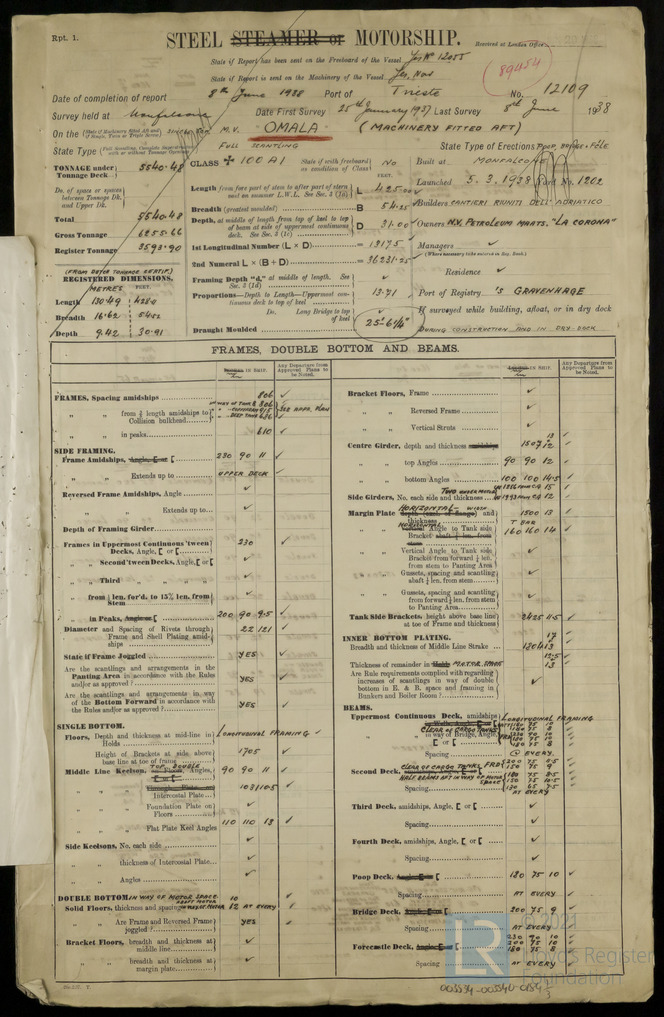 Rpt. 1.
STEEL STEAMER or MOTORSHIP.
Received at London Office
State if Report has been sent on the Freeboard of the Vessel Yes No 12055
State if Report is sent on the Machinery of the Vessel Yes,
89454
Date of completion of report 8th June 1938 Port of Trieste No. 12109
Survey held at Monfalcone Date First Survey 25th January 1937 Last Survey 8th June 1938
On the M.V. OMALA (MACHINERY FITTED AFT)
State Type FULL SCANTLING State Type of Erections POOP, BRIDGE & FCLE
TONNAGE under Tonnage Deck 5540.48
CLASS ✠ 100 A1 State if with freeboard as condition of Class No
Built at MONFALCONE
Launched 5.3.1938 Yard No. 1202
Do. of space or spaces between Tonnage Dk. and Upper Dk.
Total 5540.48
Gross Tonnage 6255.66
Register Tonnage 3593.90
FEET.
Length from fore part of stem to after part of stern post on summer L.W.L. See Sec. 3 (1a) L 425.00
Breadth (greatest moulded) B 54.25
Depth, at middle of length from top of keel to top of beam at side of uppermost continuous deck. See Sec. 3 (1c) D 31.00
1st Longitudinal Number (L × D) = 13175
2nd Numeral L × (B + D) = 36231.25
Framing Depth "d," at middle of length. See Sec. 3 (1d)
Proportions—Depth to Length—Uppermost continuous deck to top of keel 13.71
Do. Long Bridge to top of keel
Draught Moulded 25' 6¼"
Builders CANTIERI RIUNITI DELL' ADRIATICO
Owners N.V. PETROLEUM MAATS. "LA CORONA"
Managers
(Where necessary to be entered in Reg. Book.)
Residence
Port of Registry 'S GRAVENHAGE
If surveyed while building, afloat, or in dry dock
DURING CONSTRUCTION AND IN DRY DOCK
(FROM DUTCH TONNAGE CERTIF.)
REGISTERED DIMENSIONS.
METRES FEET.
Length 130.49 428.0
Breadth 16.62 54.52
Depth 9.42 30.91
FRAMES, DOUBLE BOTTOM AND BEAMS.
IN SHIP.
Any Departure from Approved Plans to be Noted.
FRAMES, Spacing amidships 806
„ „ from ⅗ length amidships to Collision bulkhead SEE APPR. PLAN
„ „ in peaks 610
SIDE FRAMING.
Frame Amidships, Angle, [ or [ 230 90 11
„ „ Extends up to UPPER DECK
Reversed Frame Amidships, Angle
„ „ Extends up to
Depth of Framing Girder
Frames in Uppermost Continuous 'tween Decks, Angle, [ or [ 230
„ „ Second 'tween Decks, Angle, [ or [
„ „ Third „ „ „ „
„ from ⅕ len. for'd. to 15% len. from Stem
„ in Peaks, Angle or [ 200 90 9.5
Diameter and Spacing of Rivets through Frame and Shell Plating amidships 22 121
State if Frame Joggled YES
Are the scantlings and arrangements in the Panting Area in accordance with the Rules and/or as approved? YES
Are the scantlings and arrangements in way of the Bottom Forward in accordance with the Rules and/or as approved? YES
SINGLE BOTTOM.
Floors, Depth and thickness at mid-line in Holds LONGITUDINAL FRAMING
Height of Brackets at side, above base line at toe of frame 1705
Middle Line Keelson, TOP DOUBLE Angles, [ or [ 90 90 11
„ „ Intercostal Plate 1081 10.5
„ „ Foundation Plate on Floors
„ „ Flat Plate Keel Angles 110 110 13
Side Keelsons, No. each side
„ „ thickness of Intercostal Plate
„ „ Angles
DOUBLE BOTTOM IN WAY OF MOTOR SPACE
Solid Floors, thickness and spacing 10 12 AT EVERY
„ „ Are Frame and Reversed Frame joggled? YES
Bracket Floors, breadth and thickness at middle line
„ „ breadth and thickness at margin plate
Bracket Floors, Frame
„ „ Reversed Frame
„ „ Vertical Struts
Centre Girder, depth and thickness 1507 13 12
„ „ top Angles 90 90 12
„ „ bottom Angles 100 100 14.5
Side Girders, No. each side and thickness
Margin Plate HORIZONTAL WIDTH and thickness 1500 13
HORIZONTAL Angle to Tank side Bracket T BAR 160 160 14
„ „ Vertical Angle to Tank side Bracket from forward ¼ len. from stem to Panting Area
„ „ Gussets, spacing and scantling abaft ¼ len. from stem
„ „ Gussets, spacing and scantling from forward ¼ len. from stem to Panting Area
Tank Side Brackets, height above base line at toe of Frame and thickness 2425 11.5
INNER BOTTOM PLATING.
Breadth and thickness of Middle Line Strake 1204 17 13
Thickness of remainder in MOTOR SPACE 12.5 13
Are Rule requirements complied with regarding increases of scantlings in way of double bottom in E. & B. space and framing in Bunkers and Boiler Room?
BEAMS.
Uppermost Continuous Deck, amidships LONGITUDINAL FRAMING
CLEAR OF CARGO TANKS
„ „ in way of Bridge, Angle, [ or [
Spacing @ EVERY
Second Deck, CLEAR OF CARGO TANKS, FRD
HALF BEAMS AFT IN WAY OF MOTOR SPACE
Spacing AT EVERY
Third Deck, amidships, Angle, [ or [
Spacing
Fourth Deck, amidships, Angle, [ or [
Spacing
Poop Deck, Angle [ or [ 180 75 10
Spacing AT EVERY
Bridge Deck, Angle [ or [ 200 75 9
Spacing AT EVERY
Forecastle Deck, Angle [ or [ 230 90 10
200 75 10
180 75 8
Spacing AT EVERY
© 2021
Lloyd's Register
Foundation
LR
005534-005540-0154 1/3